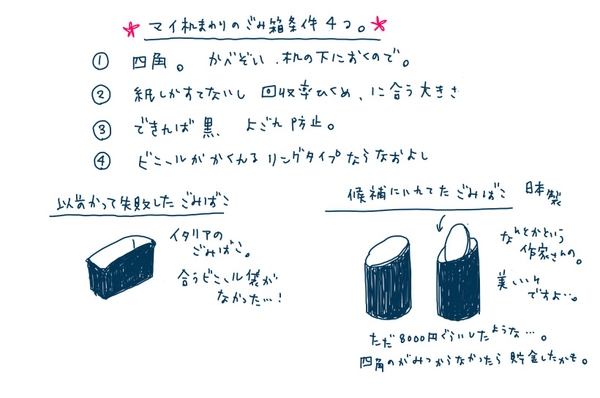 マイ机まわりのごみ箱条件4つ。
① 四角。 かべぞい、机の下におくので。
② 紙しかすてないし 回収率ひくめ、に合う大きさ
③ できれば黒、よごれ防止。
④ ビニールがかくれるリングタイプならなおよし
以前かって失敗したごみばこ
イタリアの
ごみばこ。
合うビニール袋が
なかった…!
候補にいれてたごみばこ 日本製
なんとかという
作家さんの。
美しい
ですよ…。
ただ8000円ぐらいしたような…。
四角のがみつからなかったら貯金したかも。